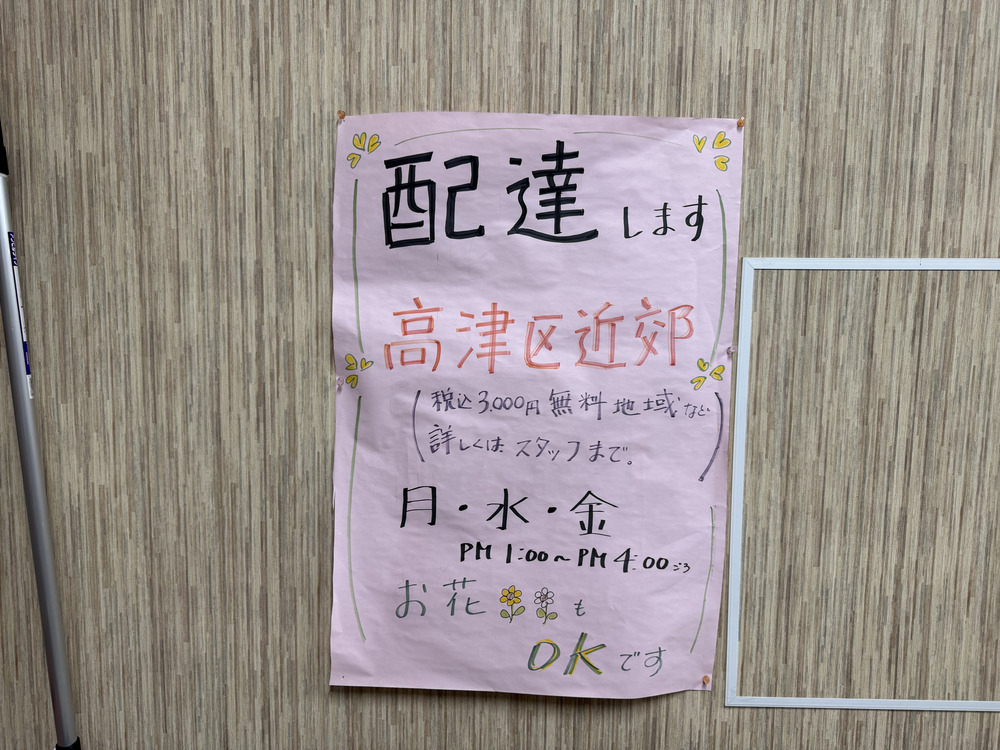 配達します
高津区近郊
(税込3,000円無料地域など
詳しくはスタッフまで。)
月・水・金
PM 1:00〜PM 4:00ごろ
お花も
OKです